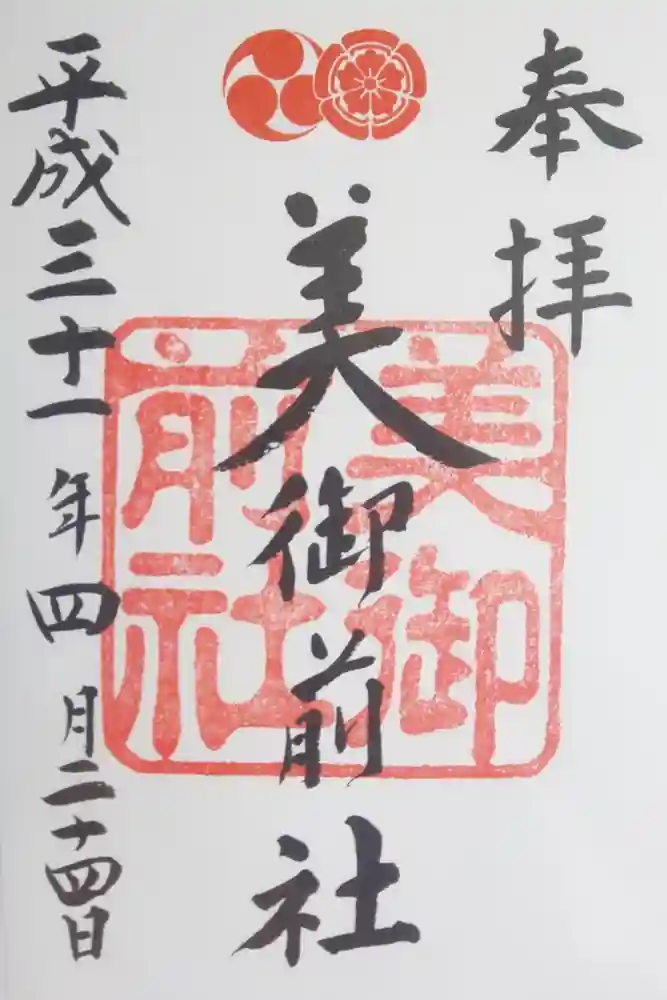 奉拝
美御前社
美御前社
平成三十一年四月二十四日